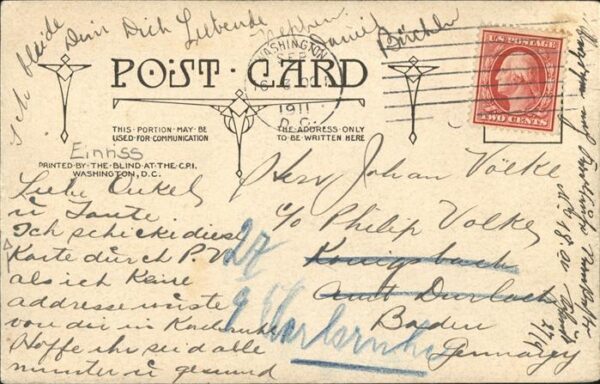 Ich bleibe Dein Dich Liebende
Neffen
Daniel Büchler
POST CARD
WASHINGTON
SEP
1911
D.C.
U.S. POSTAGE
TWO CENTS
THIS PORTION MAY BE
USED FOR COMMUNICATION
THE ADDRESS ONLY
TO BE WRITTEN HERE
Einriss
PRINTED BY THE BLIND AT THE C.P.I.
WASHINGTON, D.C.
Liebe Onkel
u Tante.
Ich schicke diese
Karte durch P.V.
als ich Keine
addresse wüste
von dir in Karlsruhe
Hoffe ihr seid alle
munter u gesund
Herr Johan Völke
c/o Philip Volke
Königsbach
Amt Durlach
Baden
Germaney
27
9
Karlsruhe
27/9